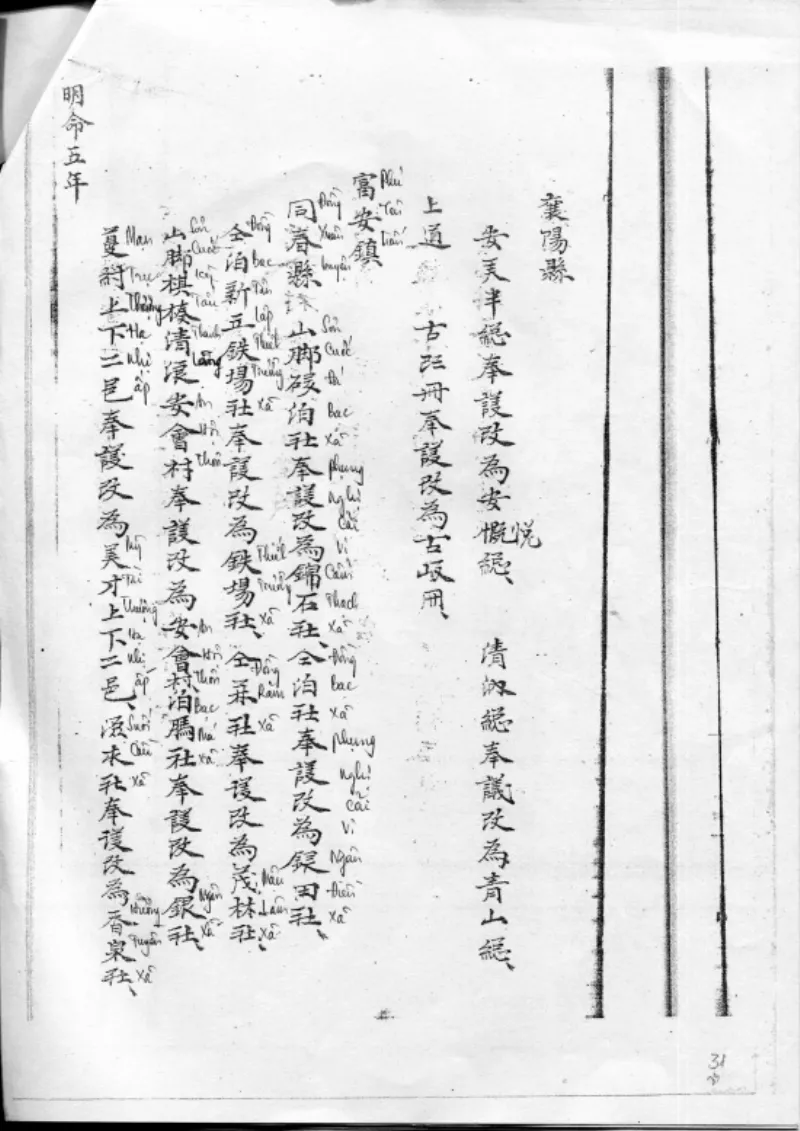 襄陽縣
安美半總奉議改為安慨總、
悅
清 總奉議改為青山總、
上道
古 冊奉議改為古 冊、
富安鎮
Phú
同春縣
Đồng Xuân huyện
山脚 泊社奉議改為錦石社、仝泊社奉議改為銀田社、
Sơn Cước Đá Bạc xã phụng nghị cải vi Cẩm Thạch xã Đồng bạc xã phụng nghị cải vi Ngân điền xã
仝泊新立鉄場社奉議改為鉄場社、仝 社奉議改為茂林社、
Đồng bạc Tân lập Thiết Trường xã Thiết Trường xã Đồng xã Mậu Lâm xã
山脚棋 清 安會村奉議改為安會村、泊 社奉議改為銀社、
Sơn Cước An Hội thôn An Hội thôn Bạc Má xã Ngân xã
蔓 上下二邑奉議改為美才上下二邑、 社奉議改為香泉社、
Mạn Thượng Hạ nhị ấp Mỹ Tài Thượng Hạ nhị ấp Suối xã Hương Tuyền xã
明命五年
31